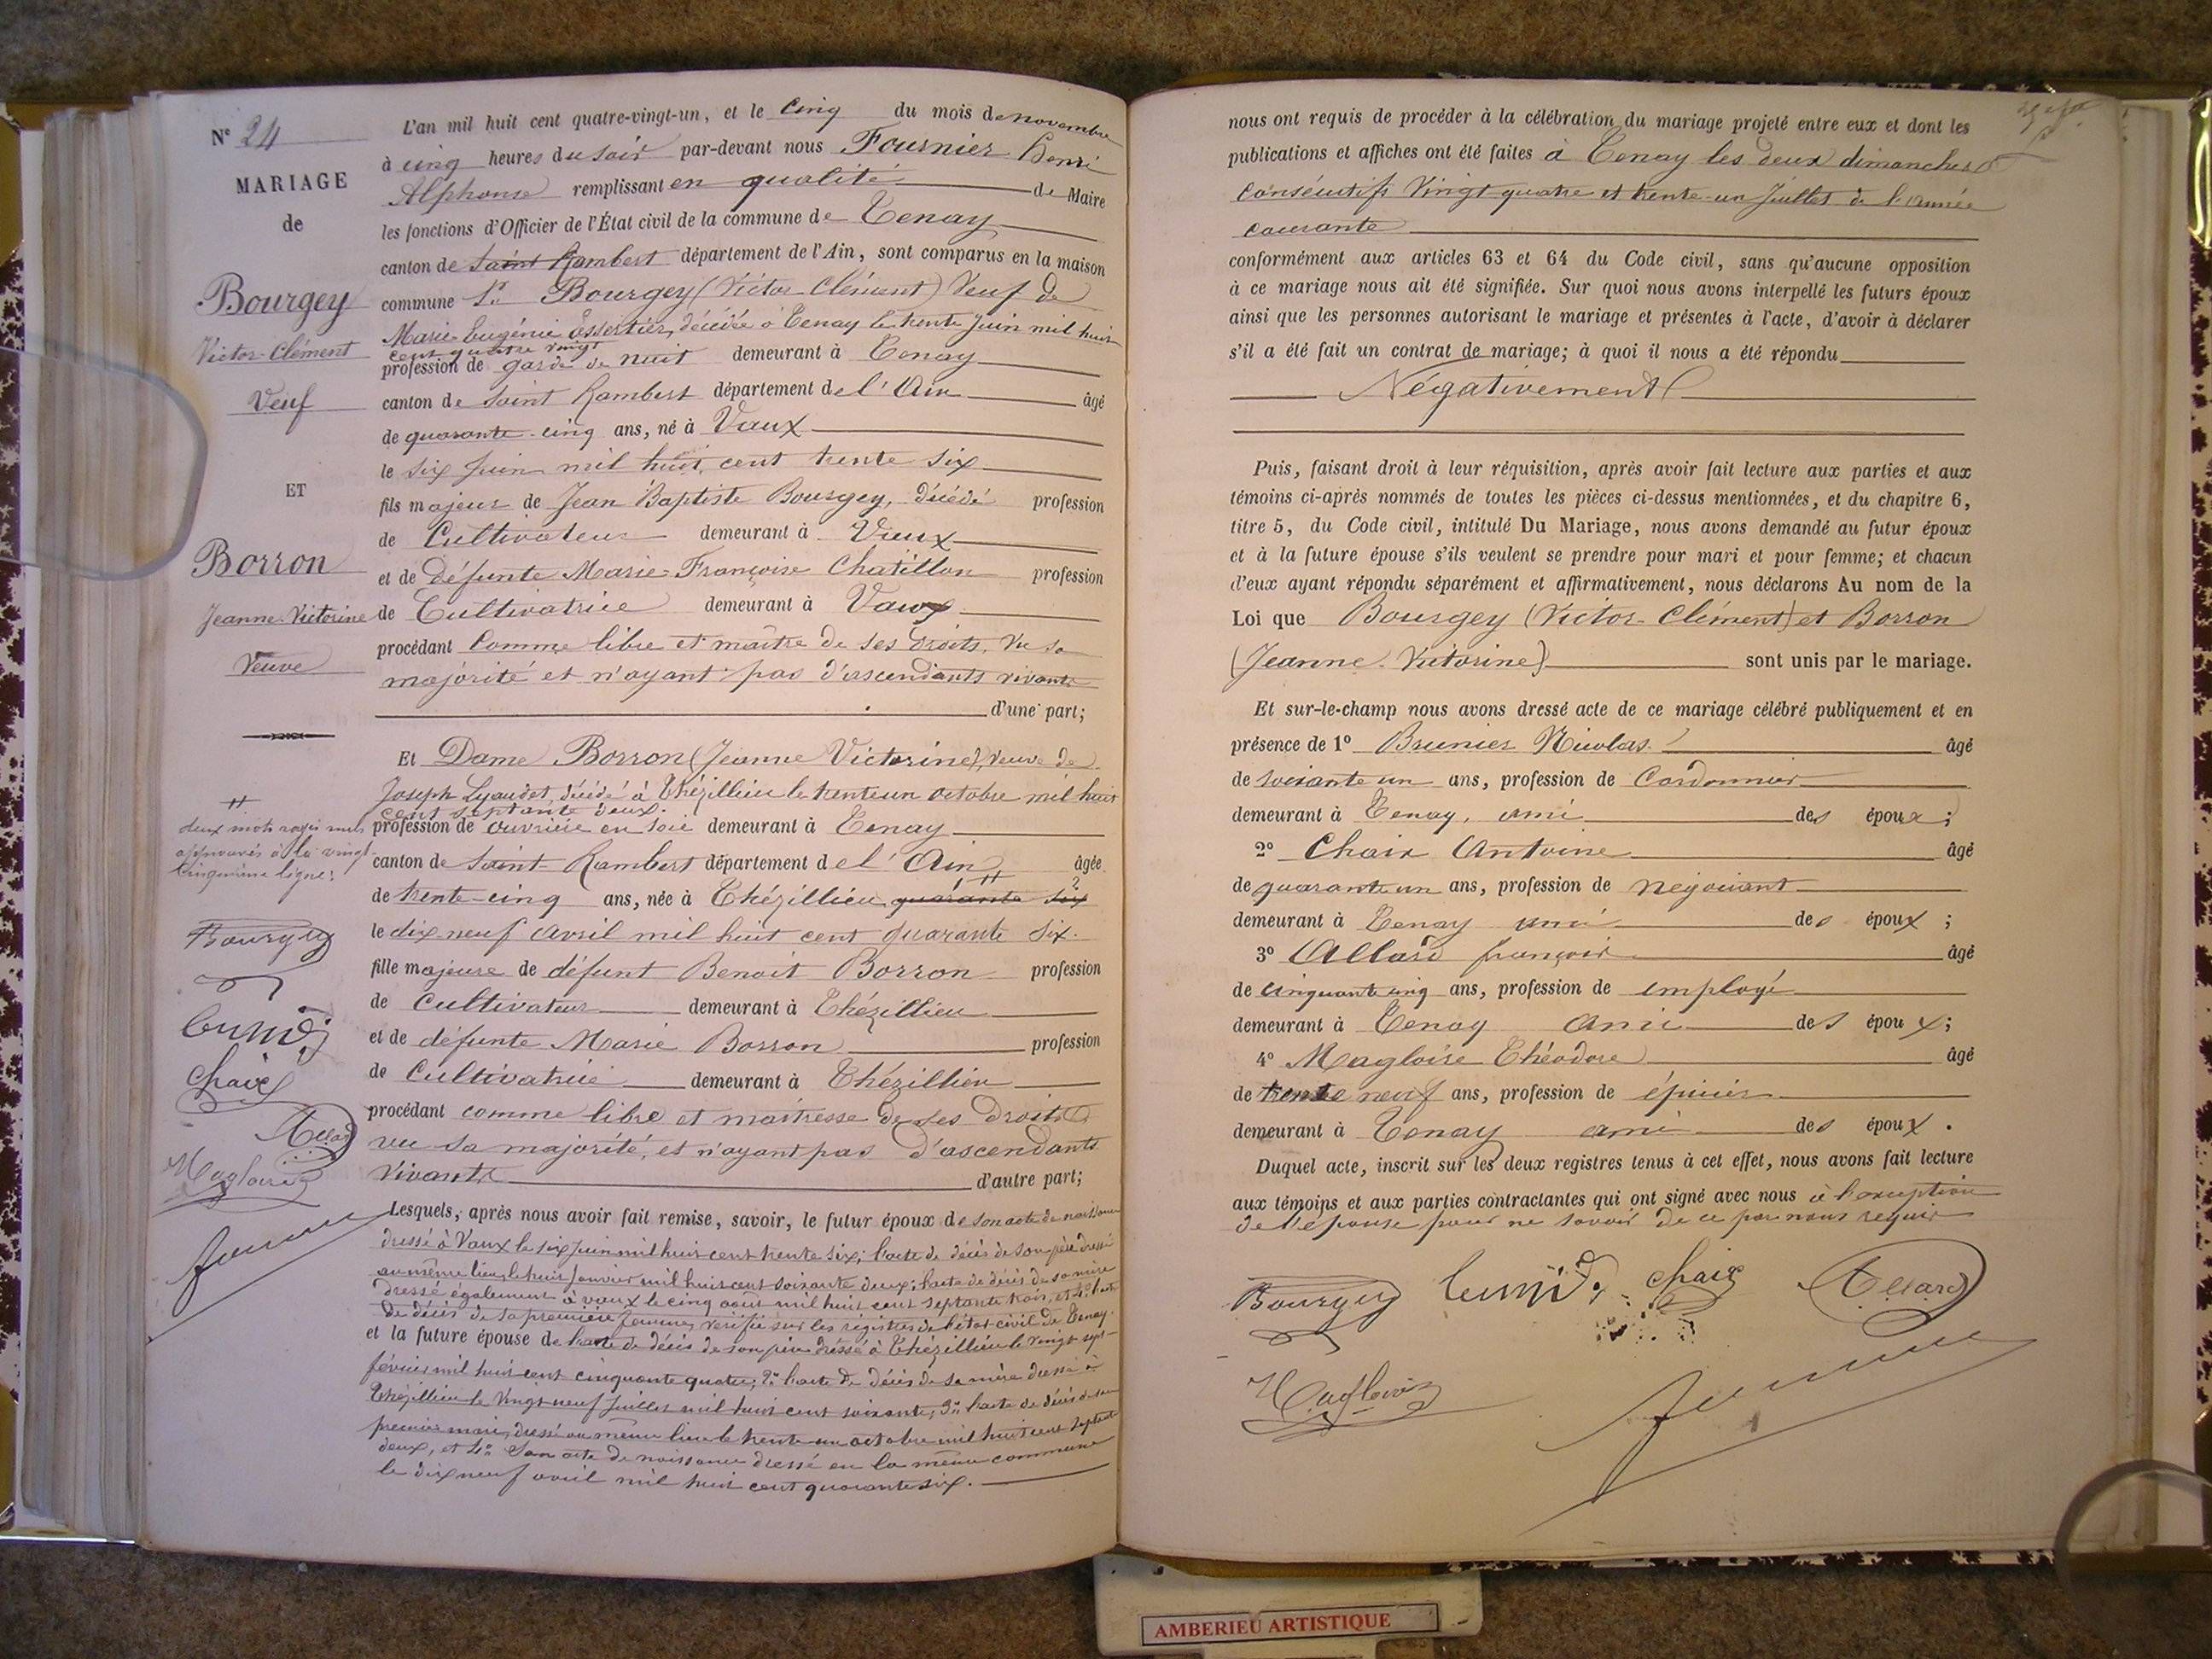 N° 24
MARIAGE
de
Bourgey
Victor-Clément
Veuf
ET
Borron
Jeanne-Victorine
Veuve
deux mots rayés nuls
approuvés à la vingt-
cinquième ligne.
Bourgey
Chaix
Allard
Magloire
L'an mil huit cent quatre-vingt-un, et le cinq du mois de novembre
à cinq heures du soir par-devant nous Fournier Henri
Alphonse remplissant en qualité de Maire
les fonctions d'Officier de l'État civil de la commune de Tenay
canton de Saint Rambert département de l'Ain, sont comparus en la maison
commune 1° Bourgey (Victor-Clément) Veuf de
Marie Eugénie Essertier, décédée à Tenay le trente Juin mil huit
cent quatre vingt
profession de garde de nuit demeurant à Tenay
canton de Saint Rambert département de l'Ain âgé
de quarante-cinq ans, né à Vaux
le six Juin mil huit cent trente six
fils majeur de Jean Baptiste Bourgey, décédé profession
de Cultivateur demeurant à Vaux
et de Défunte Marie-Françoise Chatillon profession
de Cultivatrice demeurant à Vaux
procédant comme libre et maître de ses droits, vu sa
majorité et n'ayant pas d'ascendants vivants
d'une part;
Et Dame Borron (Jeanne Victorine), Veuve de
Joseph Lyaudet, décédé à Thézillieu le trente un octobre mil huit
cent septante deux.
profession de ouvrière en soie demeurant à Tenay
canton de Saint-Rambert département de l'Ain âgée
de trente-cinq ans, née à Thézillieu quarante six
le dix neuf avril mil huit cent quarante six.
fille majeure de défunt Benoit Borron profession
de cultivateur demeurant à Thézillieu
et de défunte Marie Borron profession
de Cultivatrice demeurant à Thézillieu
procédant comme libre et maîtresse de ses droits
vu sa majorité, et n'ayant pas d'ascendants
vivants d'autre part;
Lesquels, après nous avoir fait remise, savoir, le futur époux de son acte de naissance
dressé à Vaux le six Juin mil huit cent trente six; l'acte de décès de son père dressé
au même lieu le huit Janvier mil huit cent soixante deux; l'acte de décès de sa mère
dressé également à Vaux le cinq août mil huit cent septante trois, et 4° l'acte
de décès de sa première femme, vérifié sur les registres de l'état civil de Tenay.
et la future épouse de l'acte de décès de son père dressé à Thézillieu le vingt sept
février mil huit cent cinquante quatre; 2° l'acte de décès de sa mère dressé à
Thézillieu le vingt neuf Juillet mil huit cent soixante; 3° l'acte de décès de son
premier mari, dressé au même lieu le trente un octobre mil huit cent septante
deux, et 4° son acte de naissance dressé en la même commune
le dix neuf avril mil huit cent quarante six.
nous ont requis de procéder à la célébration du mariage projeté entre eux et dont les
publications et affiches ont été faites à Tenay les deux dimanches
consécutifs Vingt quatre et trente-un Juillet de l'année
courante
conformément aux articles 63 et 64 du Code civil, sans qu'aucune opposition
à ce mariage nous ait été signifiée. Sur quoi nous avons interpellé les futurs époux
ainsi que les personnes autorisant le mariage et présentes à l'acte, d'avoir à déclarer
s'il a été fait un contrat de mariage; à quoi il nous a été répondu
Négativement
Puis, faisant droit à leur réquisition, après avoir fait lecture aux parties et aux
témoins ci-après nommés de toutes les pièces ci-dessus mentionnées, et du chapitre 6,
titre 5, du Code civil, intitulé Du Mariage, nous avons demandé au futur époux
et à la future épouse s'ils veulent se prendre pour mari et pour femme; et chacun
d'eux ayant répondu séparément et affirmativement, nous déclarons Au nom de la
Loi que Bourgey (Victor-Clément) et Borron
(Jeanne-Victorine) sont unis par le mariage.
Et sur-le-champ nous avons dressé acte de ce mariage célébré publiquement et en
présence de 1° Brunier Nicolas âgé
de soixante un ans, profession de Cordonnier
demeurant à Tenay, ami des époux;
2° Chaix Antoine âgé
de quarante un ans, profession de négociant
demeurant à Tenay ami des époux;
3° Allard françois âgé
de cinquante cinq ans, profession de employé
demeurant à Tenay Ami des époux;
4° Magloire Théodore âgé
de trente neuf ans, profession de épicier
demeurant à Tenay ami des époux.
Duquel acte, inscrit sur les deux registres tenus à cet effet, nous avons fait lecture
aux témoins et aux parties contractantes qui ont signé avec nous à l'exception
de l'épouse pour ne savoir de ce par nous requis
Bourgey Chaix Allard
Magloire
AMBERIEU ARTISTIQUE